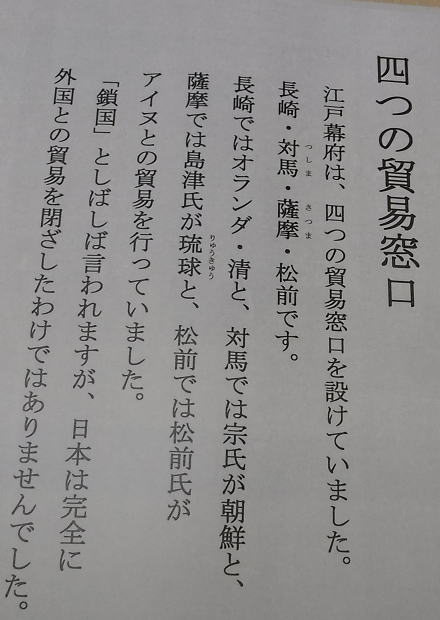 四つの貿易窓口
江戸幕府は、四つの貿易窓口を設けていました。
長崎・対馬・薩摩・松前です。
長崎ではオランダ・清と、対馬では宗氏が朝鮮と、
薩摩では島津氏が琉球と、松前では松前氏が
アイヌとの貿易を行っていました。
「鎖国」としばしば言われますが、日本は完全に
外国との貿易を閉ざしたわけではありませんでした。